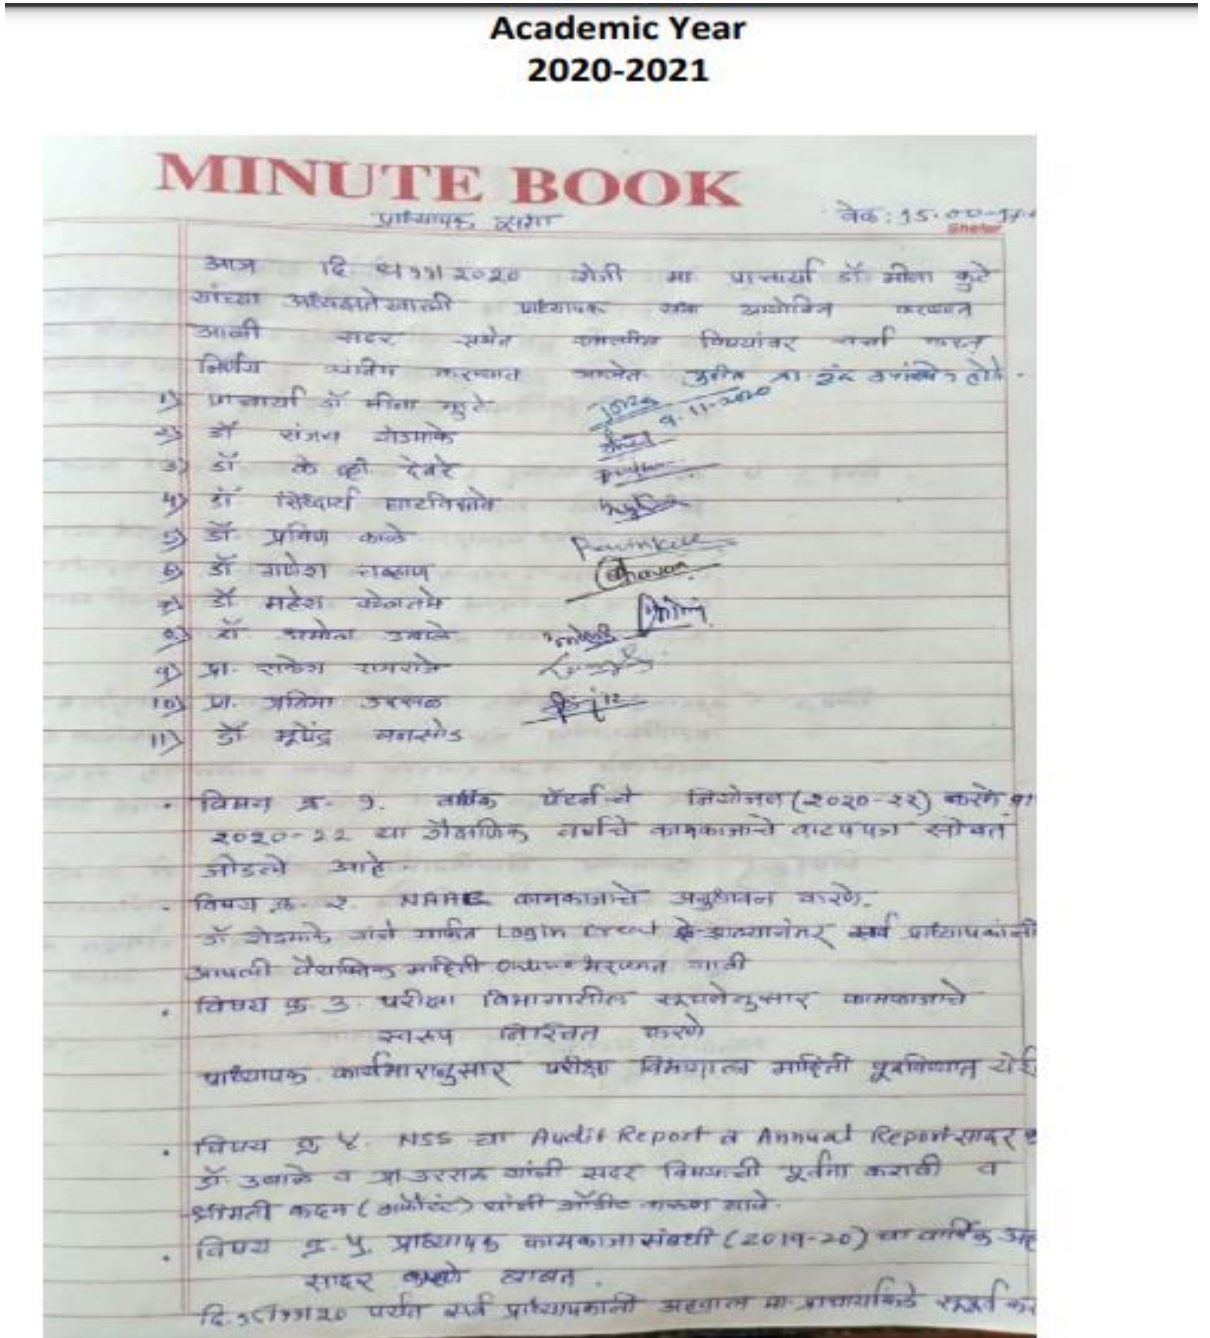 Academic Year
2020-2021
MINUTE BOOK
प्राध्यापक सभा
वेळ : 15.00-17.0
Shelar
आज दि 2020 रोजी मा प्राचार्या डॉ मीना कुटे
यांच्या अध्यक्षतेखाली प्राध्यापक सभा आयोजित करण्यात
आली सदर सभेत खालील विषयांवर चर्चा करून
निर्णय करण्यात आलेत
1) प्राचार्या डॉ मीना कुटे
9.11-2020
2) डॉ संजय शेडमाके
3) डॉ के व्ही देवरे
4) डॉ सिध्दार्थ घाटविसावे
5) डॉ प्रविण काळे
6) डॉ गणेश चव्हाण
Chavan
7) डॉ महेश
8) डॉ उबाळे
9) प्रा. राकेश रामराजे
10) प्रा. प्रतिमा उरसळ
11) डॉ भूपेंद्र बनसोड
• विषय क्र. १. वार्षिक पॅटर्नचे नियोजन (२०२०-२२) करणे
2020-22 या शैक्षणिक वर्षाचे कामकाजाचे वाटपपत्र सोबत
जोडले आहे.
• विषय क्र. २. NAAC कामकाजाचे अनुधावन करणे.
डॉ शेडमाके यांचे मार्फत Login आल्यानंतर सर्व प्राध्यापकांनी
आपली वैयक्तिक माहिती Online भरण्यात यावी
• विषय क्र. 3. परीक्षा विभागातील सूचनेनुसार कामकाजाचे
स्वरूप निश्चित करणे
प्राध्यापक कार्यभारानुसार परीक्षा विभागाला माहिती पुरविण्यात
• विषय क्र ४. NSS चा Audit Report व Annual Report सादर
डॉ. उबाळे व प्रा उरसळ यांनी सदर विषयाची पूर्तता करावी व
श्रीमती कदम यांनी ऑडीट करून
• विषय क्र. ५. प्राध्यापक कामकाजासंबधी (2019-20) चा वार्षिक
सादर करणे बाबत.
पर्यंत सर्व प्राध्यापकांनी अहवाल मा प्राचार्यांकडे